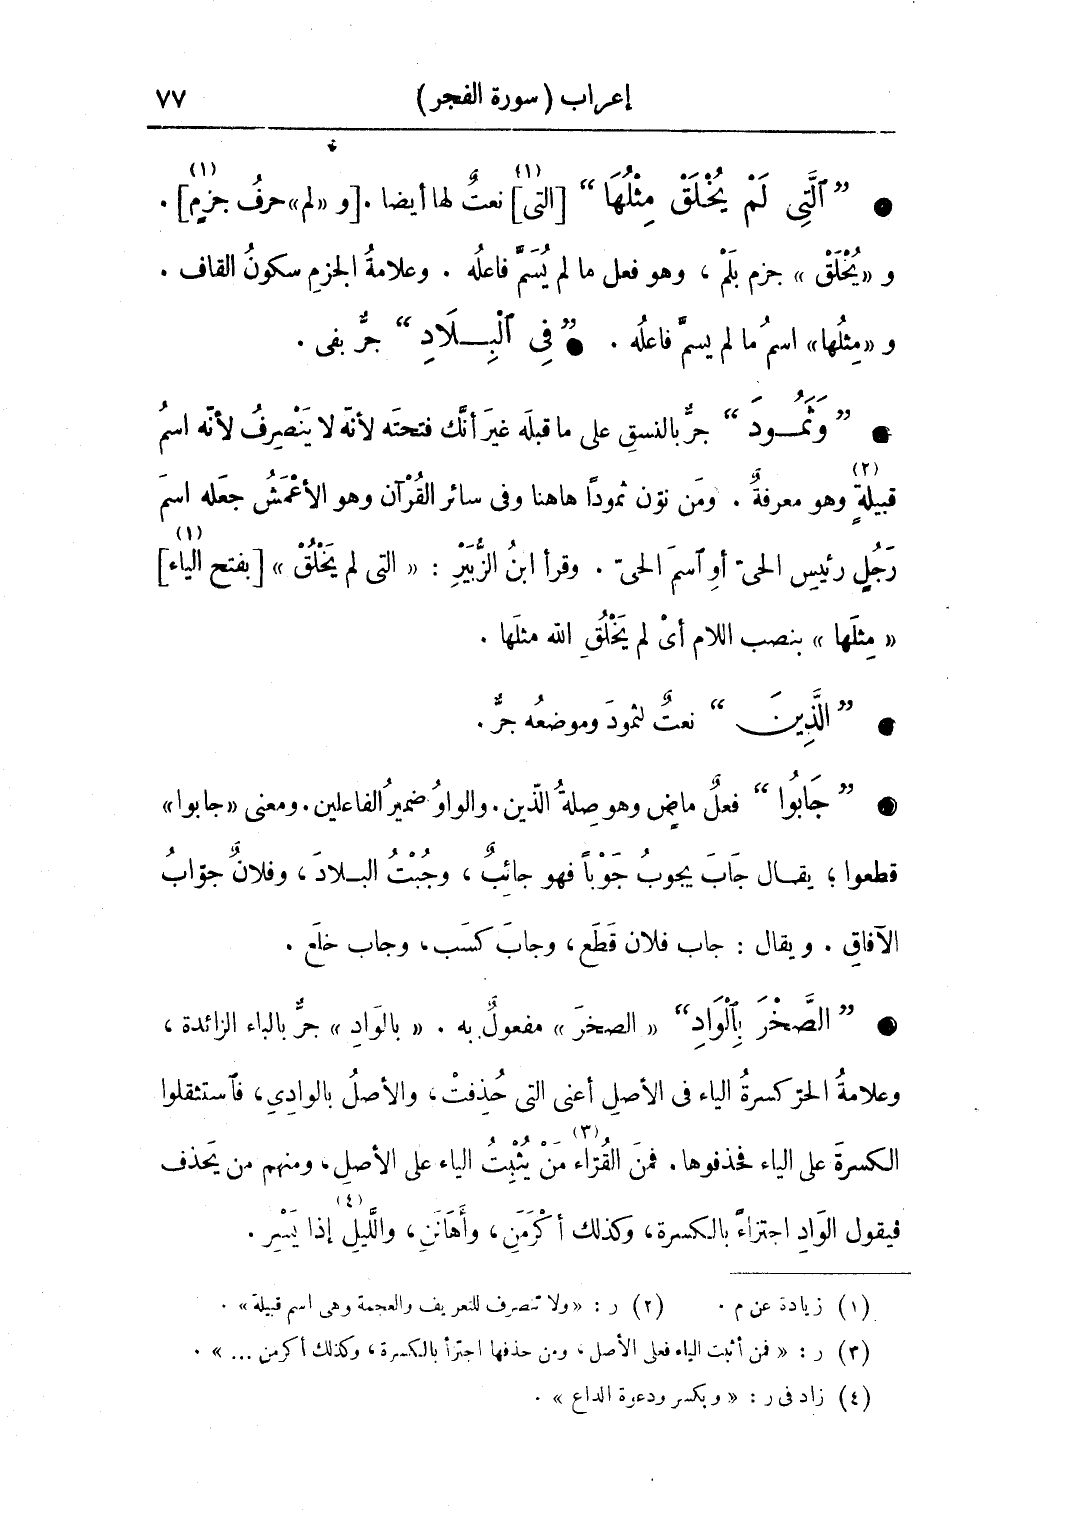 إعراب (سورة الفجر) ٧٧
● ”ٱلَّتِى لَمْ يُخْلَقْ مِثْلُهَا“ [التى](١) نعتٌ لها أيضا . [و «لم» حرفُ جزمٍ](١) .
و «يُخْلَقْ» جزم بلَمْ ، وهو فعل ما لم يُسَمَّ فاعلُه . وعلامةُ الجزمِ سكونُ القاف .
و «مِثلُها» اسمُ ما لم يسمَّ فاعلُه . ● ”فِى ٱلْبِلَادِ“ جرٌّ بفى .
● ”وَثَمُودَ“ جرٌّ بالنسقِ على ما قبلَه غيرَ أنَّك فتحتَه لأنّه لا يَنْصِرِفُ لأنّه اسمُ
قبيلةٍ(٢) وهو معرفةٌ . ومَن نوّن ثموداً هاهنا وفى سائر القُرْآن وهو الأعْمَشُ جعَله اسمَ
رَجُلٍ رئيسِ الحىّ أوِ ٱسمَ الحىّ . وقرأ ابنُ الزُّبَيْرِ : « التى لم يَخْلُقْ » [بفتح الياء](١)
« مِثلَها » بنصب اللام أىْ لم يَخْلُقِ الله مثلَها .
● ”الَّذِينَ“ نعتٌ لثمودَ وموضعُه جرٌّ .
● ”جَابُوا“ فعلٌ ماضٍ وهو صِلةُ الّذين . والواوُ ضميرُ الفاعلين . ومعنى «جابوا»
قطعوا ؛ يقال جَابَ يجوبُ جَوْباً فهو جائبٌ ، وجُبْتُ البلادَ ، وفلانٌ جوّابُ
الآفاقِ . ويقال : جاب فلان قَطَع ، وجابَ كسَب ، وجاب خلَع .
● ”الصَّخْرَ بِٱلْوَادِ“ « الصخرَ » مفعولٌ به . « بالوَادِ » جرٌّ بالباء الزائدة ،
وعلامةُ الجرّ كسرةُ الياء فى الأصلِ أعنى التى حُذِفتْ ، والأصلُ بالوادِىِ ، فٱستثقلوا
الكسرةَ على الياء فحذفوها . فمنَ القُرّاء(٣) مَنْ يُثْبِتُ الياء على الأصلِ ، ومنهم من يَحذف
فيقول الوَادِ اجتزاءً بالكسرة ، وكذلك أكْرَمَنِ ، وأَهَانَنِ ، واللَّيلِ(٤) إذا يَسْرِ .
(١) زيادة عن م . (٢) ر : «ولا تنصرف للتعريف والعجمة وهى اسم قبيلة» .
(٣) ر : « فمن أثبت الياء فعلى الأصل ، ومن حذفها اجتزأ بالكسرة ، وكذلك أكرمن ... » .
(٤) زاد فى ر : « ويكسر ودعوة الداع » .